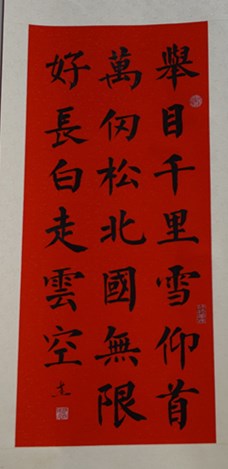 舉目千里雪仰首
萬仞松北國無限
好長白走雲空